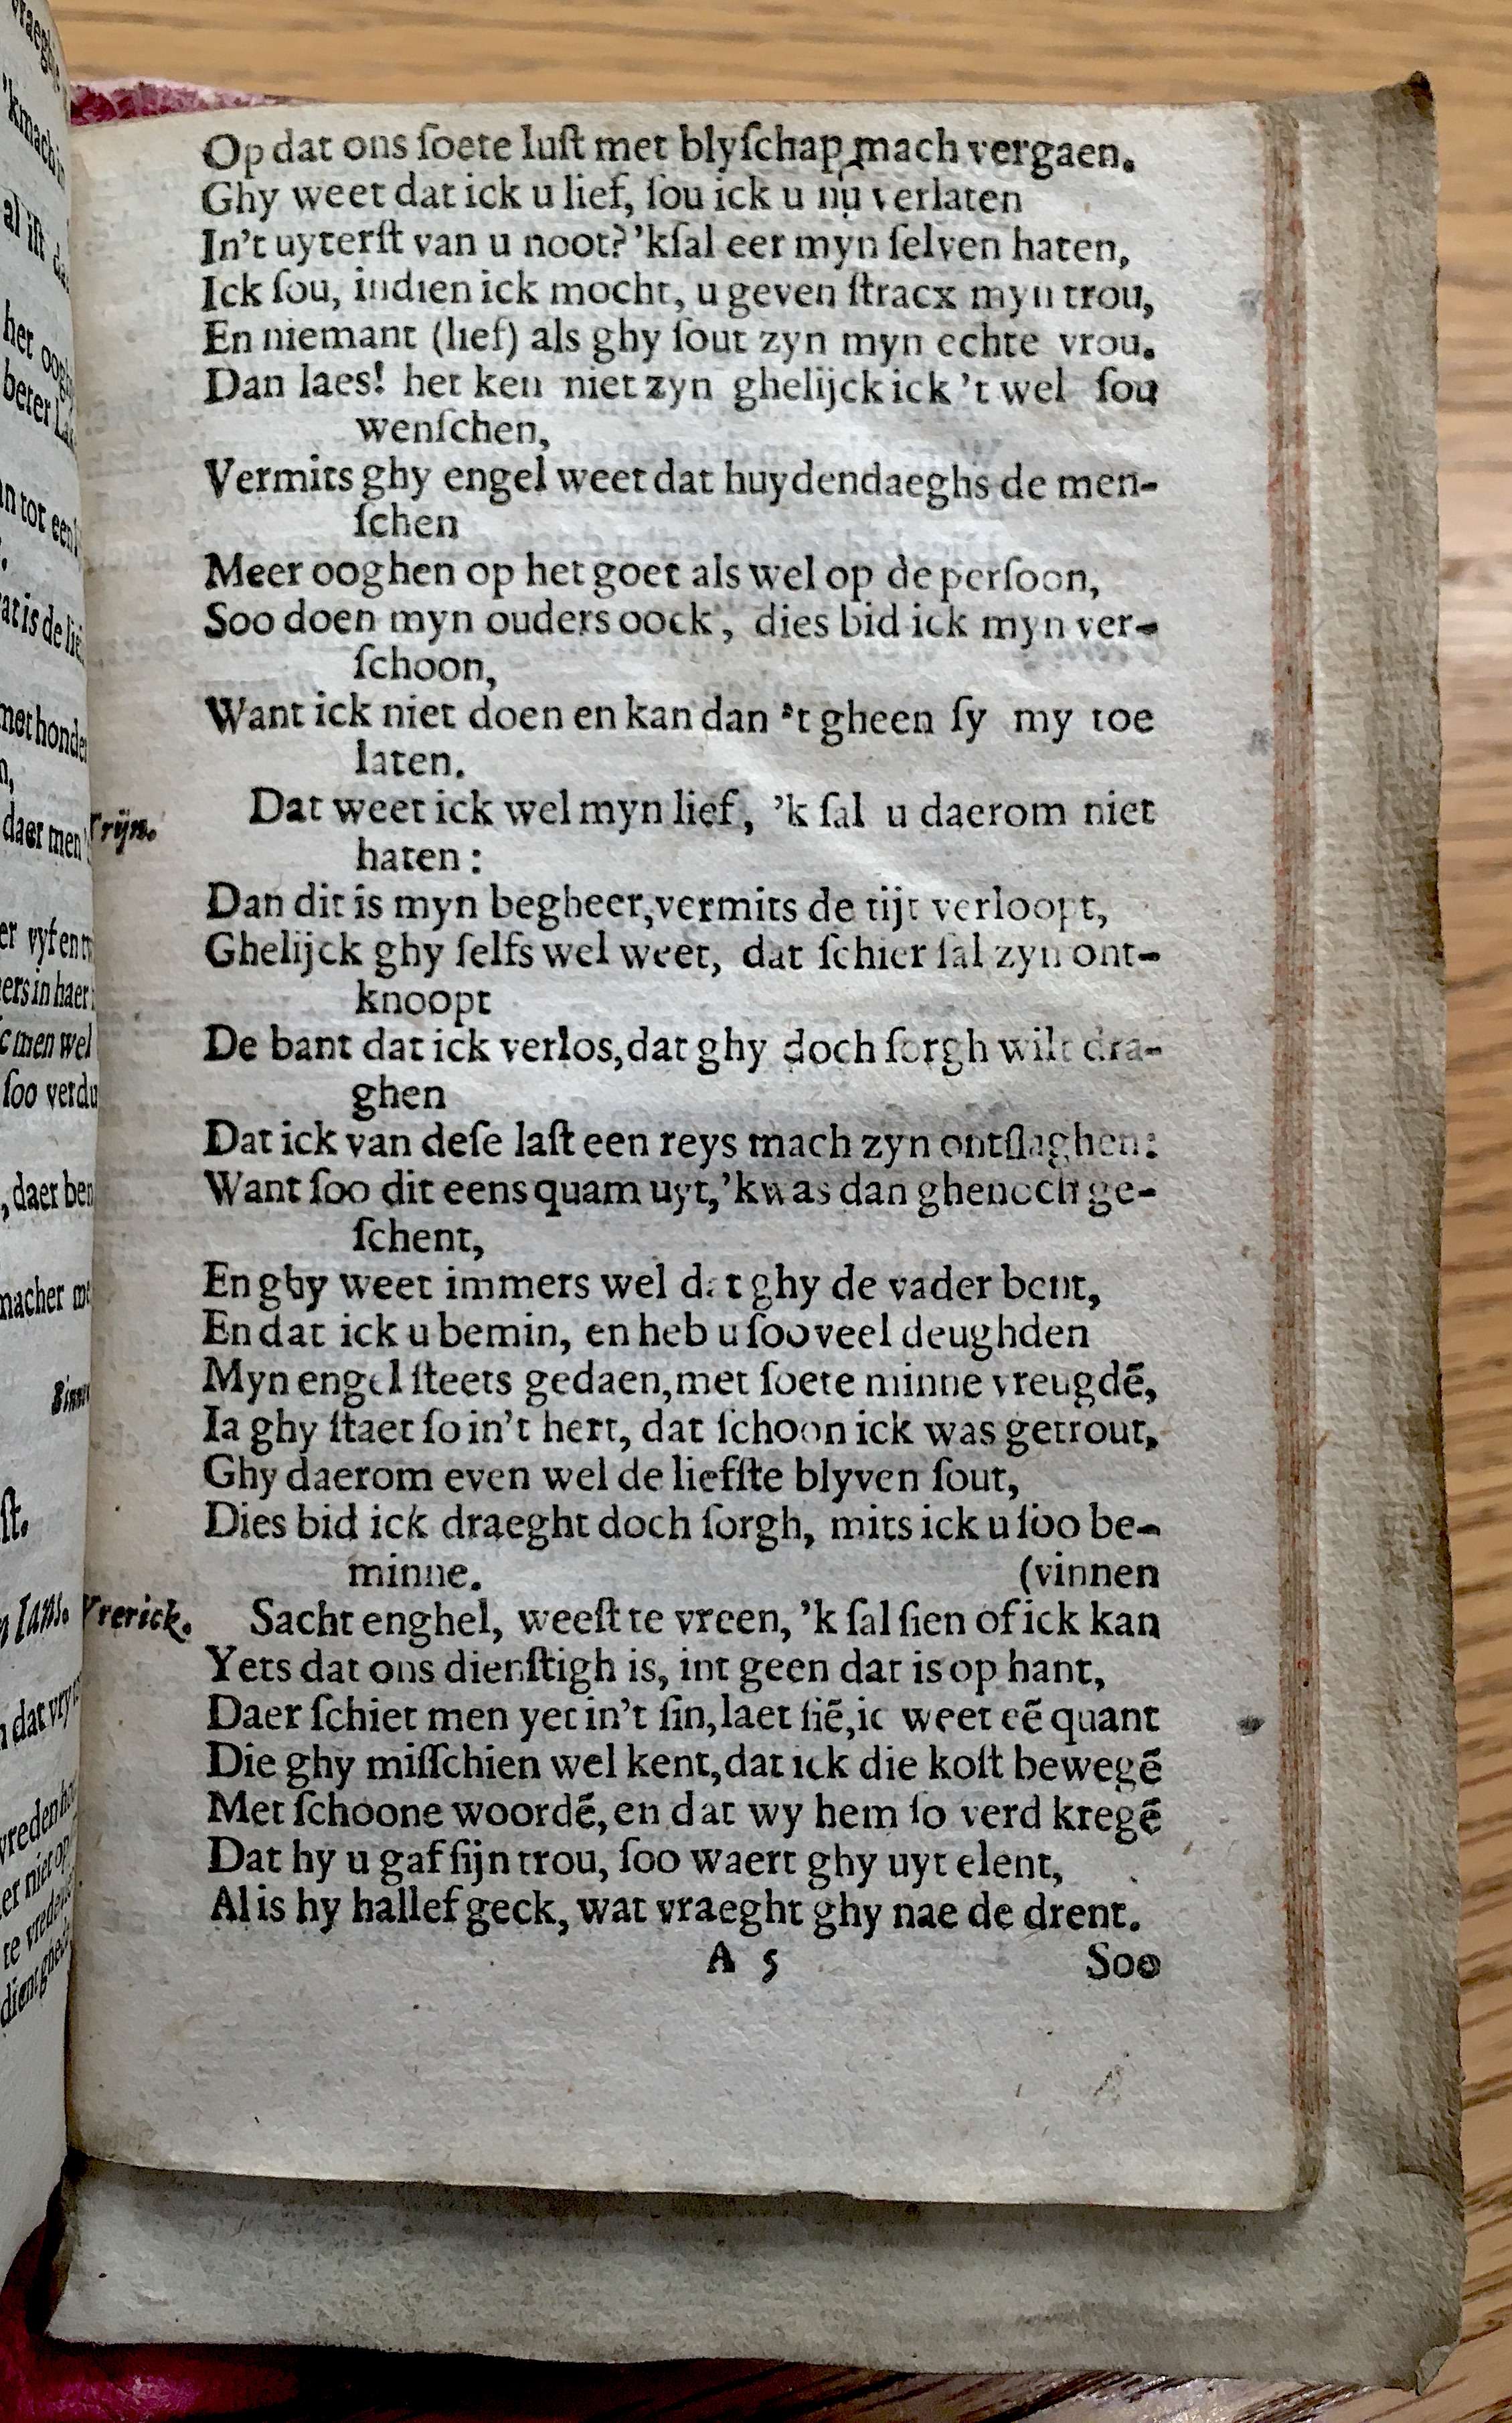 Op dat ons ſoete luſt met blyſchap mach vergaen.
Ghy weet dat ick u lief, ſou ick u nu verlaten
In't uyterſt van u noot? 'kſal eer myn ſelven haten,
Ick ſou, indien ick mocht, u geven ſtracx myn trou,
En niemant (lief) als ghy ſout zyn myn echte vrou.
Dan laes! het ken niet zyn ghelijck ick 't wel ſou
wenſchen,
Vermits ghy engel weet dat huydendaeghs de men-
ſchen
Meer ooghen op het goet als wel op de perſoon,
Soo doen myn ouders oock, dies bid ick myn ver-
ſchoon,
Want ick niet doen en kan dan 't gheen ſy my toe
laten.
Trijn. Dat weet ick wel myn lief, 'k ſal u daerom niet
haten:
Dan dit is myn begheer, vermits de tijt verloopt,
Ghelijck ghy ſelfs wel weet, dat ſchier ſal zyn ont-
knoopt
De bant dat ick verlos, dat ghy doch ſorgh wilt dra-
ghen
Dat ick van deſe laſt een reys mach zyn ontſlaghen:
Want ſoo dit eens quam uyt, 'kwas dan ghenoch ge-
ſchent,
En ghy weet immers wel dat ghy de vader bent,
En dat ick u bemin, en heb u ſoo veel deughden
Myn engel ſteets gedaen, met ſoete minne vreugdẽ,
Ia ghy ſtaet ſo in't hert, dat ſchoon ick was getrout,
Ghy daerom even wel de liefſte blyven ſout,
Dies bid ick draeght doch ſorgh, mits ick u ſoo be-
minne. (vinnen
Vrerick. Sacht enghel, weeſt te vreen, 'k ſal ſien of ick kan
Yets dat ons dienſtigh is, int geen dat is op hant,
Daer ſchiet men yet in't ſin, laet ſiẽ, ic weet eẽ quant
Die ghy miſſchien wel kent, dat ick die koſt bewegẽ
Met ſchoone woordẽ, en dat wy hem ſo verd kregẽ
Dat hy u gaf ſijn trou, ſoo waert ghy uyt elent,
Al is hy hallef geck, wat vraeght ghy nae de drent.
A 5 Soo